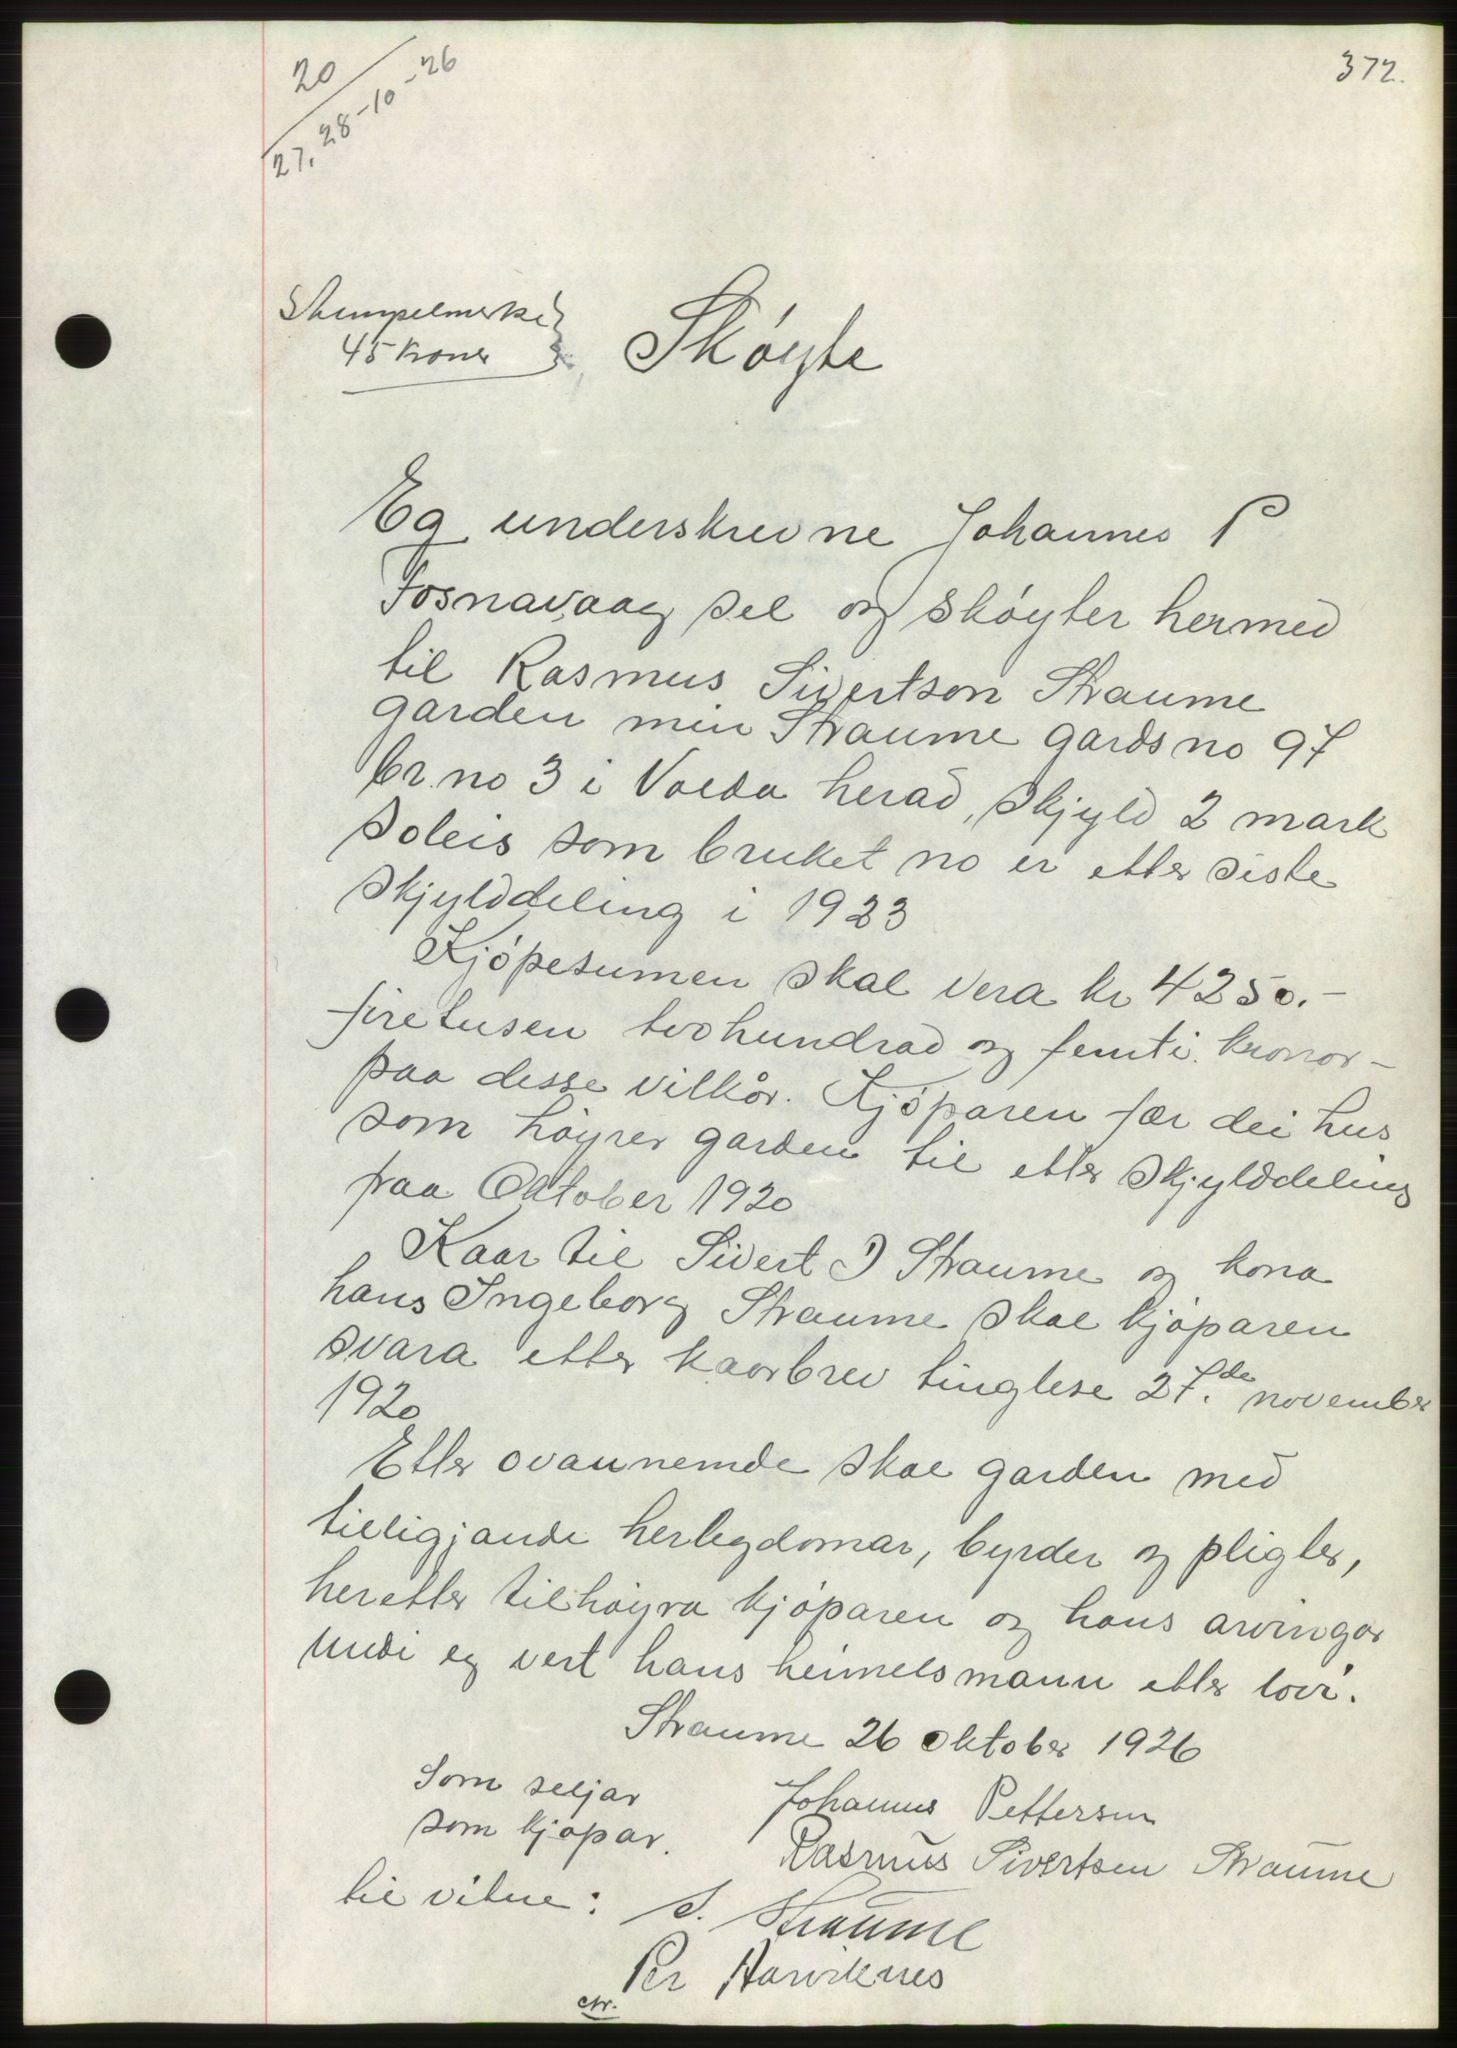 20
27, 28-10-26
372.
Stempelmerke
45 kroner
Skøyte
Eg underskrevne Johannes P
Fosnavaag sel og skøyter hermed
til Rasmus Sivertson Straume
garden min Straume gards no 97
br. no 3 i Volda herad, skjyld 2 mark
soleis som bruket no er etter siste
skjylddeling i 1923
Kjøpesumen skal vera kr 4250.-
firetusen tvohundrad og femti kronor-
paa desse vilkår. Kjøparen fær dei hus
som høyrer garden til etter skjylddeling
paa Oktober 1920
Kaar til Sivert J Straume og kona
hans Ingeborg Straume skal kjøparen
svara etter kaarbrev tinglese 27.de november
1920
Etter ovannemde skal garden med
tilligjande herlegdomar, byrder og pligter,
heretter tilhøyra kjøparen og hans arvingar
undi eg vert hans heimelsmann etter lovi.
Straume 26 oktober 1926
Som seljar Johannes Pettersen
som kjøpar. Rasmus Sivertsen Straume
til vitne: S. Straume
Per
ctr.